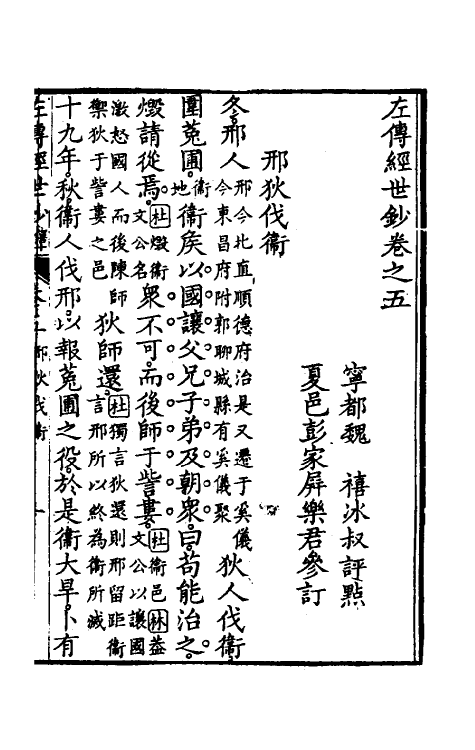 左傳經世鈔卷之五
寧都魏 禧冰叔評點
夏邑彭家屏樂君參訂
邢狄伐衞
冬邢人邢今北直順德府治是又遷于夷儀今東昌府附郭聊城縣有夷儀聚狄人伐衞
圍菟圃衞地衞侯以國讓父兄子弟及朝衆曰苟能治之
燬請從焉杜燬衞文公名衆不可而後師于訾婁杜衞邑林益文公以讓國
激怒國人而後陳師禦狄于訾婁之邑狄師還杜獨言狄還則邢留距衞言邢所以終為衞所滅
十九年秋衞人伐邢以報菟圃之役於是衞大旱卜有